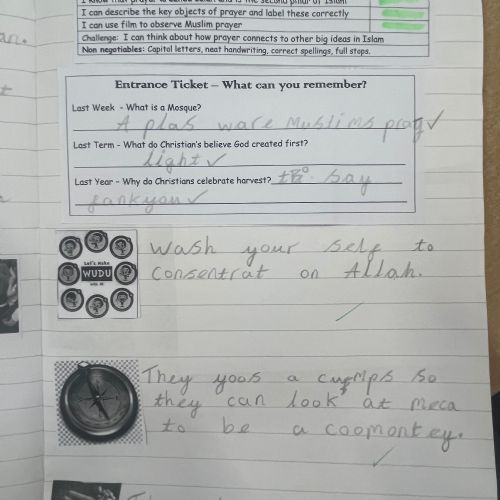 I can describe the key objects of prayer and label these correctly
I can use film to observe Muslim prayer
Challenge: I can think about how prayer connects to other big ideas in Islam
Non negotiables: Capital letters, neat handwriting, correct spellings, full stops.
Entrance Ticket – What can you remember?
Last Week - What is a Mosque?
A plas ware Muslims pray
Last Term - What do Christian's believe God created first?
light
Last Year - Why do Christians celebrate harvest? to say
fankyou
Let's Make
WUDU
with Ali
Wash your self to
consentrat on Allah.
They yoos a cumps so
they can look at meca
to be a coomontey.